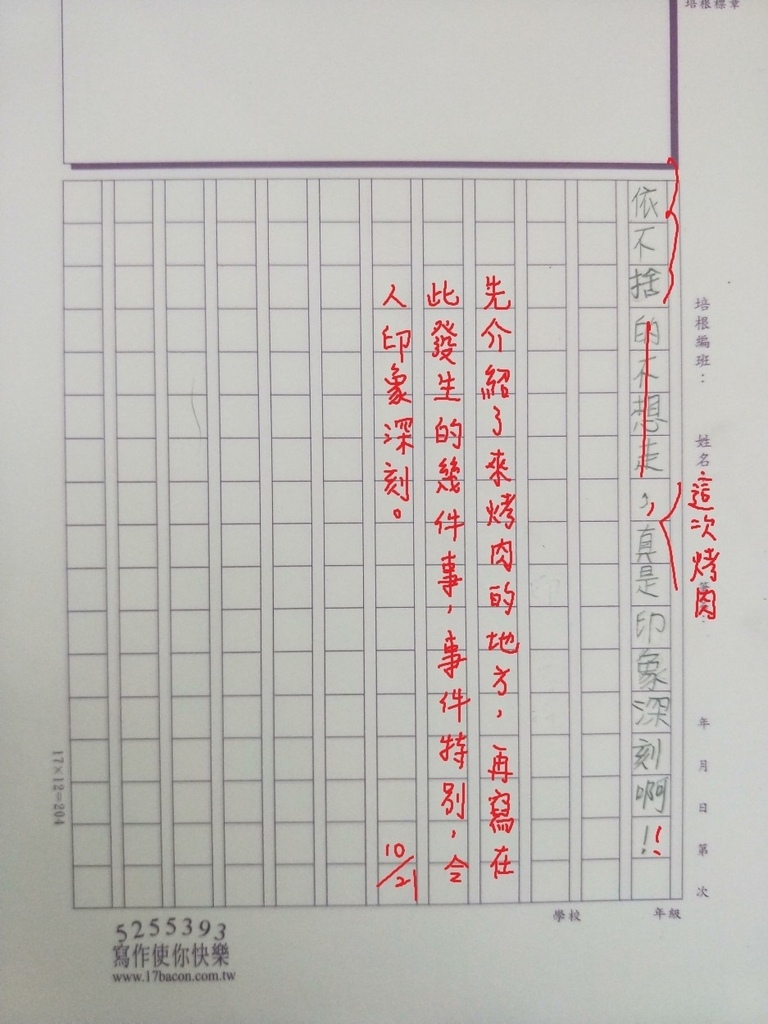 培根標章
培根編班：
姓名
年 月 日 第 次
這次烤肉
依不捨的不想走，真是印象深刻啊！
先介紹了來烤肉的地方，再寫在
此發生的幾件事，事件特別，令
人印象深刻。
10/21
17×12=204
學校
年級
5255393
寫作使你快樂
www.17bacon.com.tw